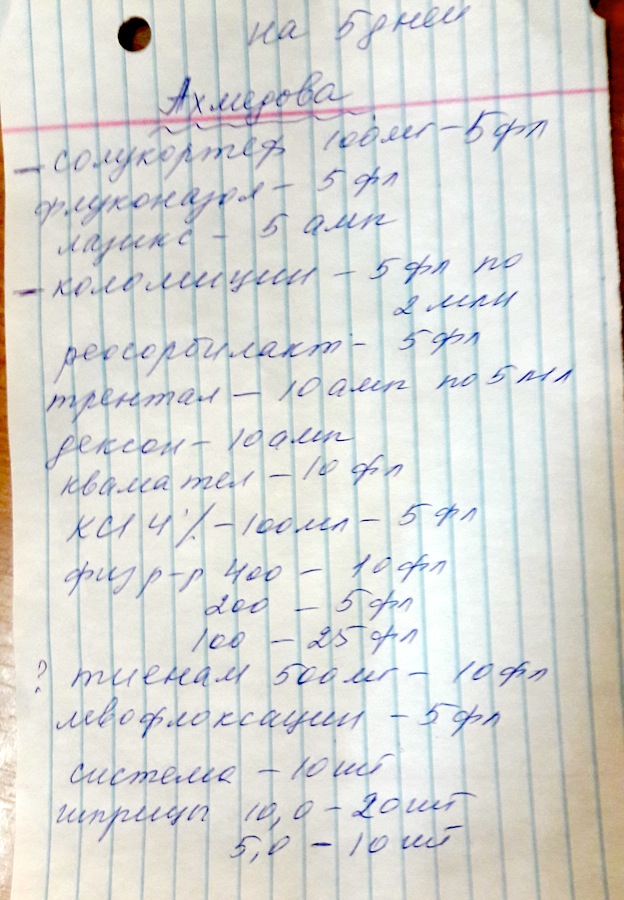 на 5 дней
Ахмедова
– солукортеф 100мг – 5 фл
флуконазол – 5 фл
лазикс – 5 амп
– коломицин – 5 фл по
2 млн
реосорбилакт – 5 фл
трентал – 10 амп по 5 мл
дексон – 10 амп
квамател – 10 фл
KCl 4% – 100мл – 5 фл
физ р-р 400 – 10 фл
200 – 5 фл
100 – 25 фл
? тиенам 500мг – 10 фл
левофлоксацин – 5 фл
система – 10 шт
шприцы 10,0 – 20 шт
5,0 – 10 шт